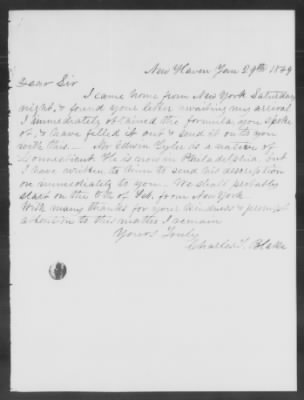 New Haven Jan 29th 1849
Dear Sir
I came home from New York Saturday
night, & found your letter awaiting my arrival
I immediately obtained the formula you spoke
of, & have filled it out & send it on to you
with this. — Mr Edwin Tyler is a native of
Connecticut He is now in Philadelphia but
I have written to him to send his description
on immediately to you. We shall probably
start on the 6th of Feb. from New York
With many thanks for your kindness & prompt
attention to this matter I remain
Yours Truly
Charles T. Blake